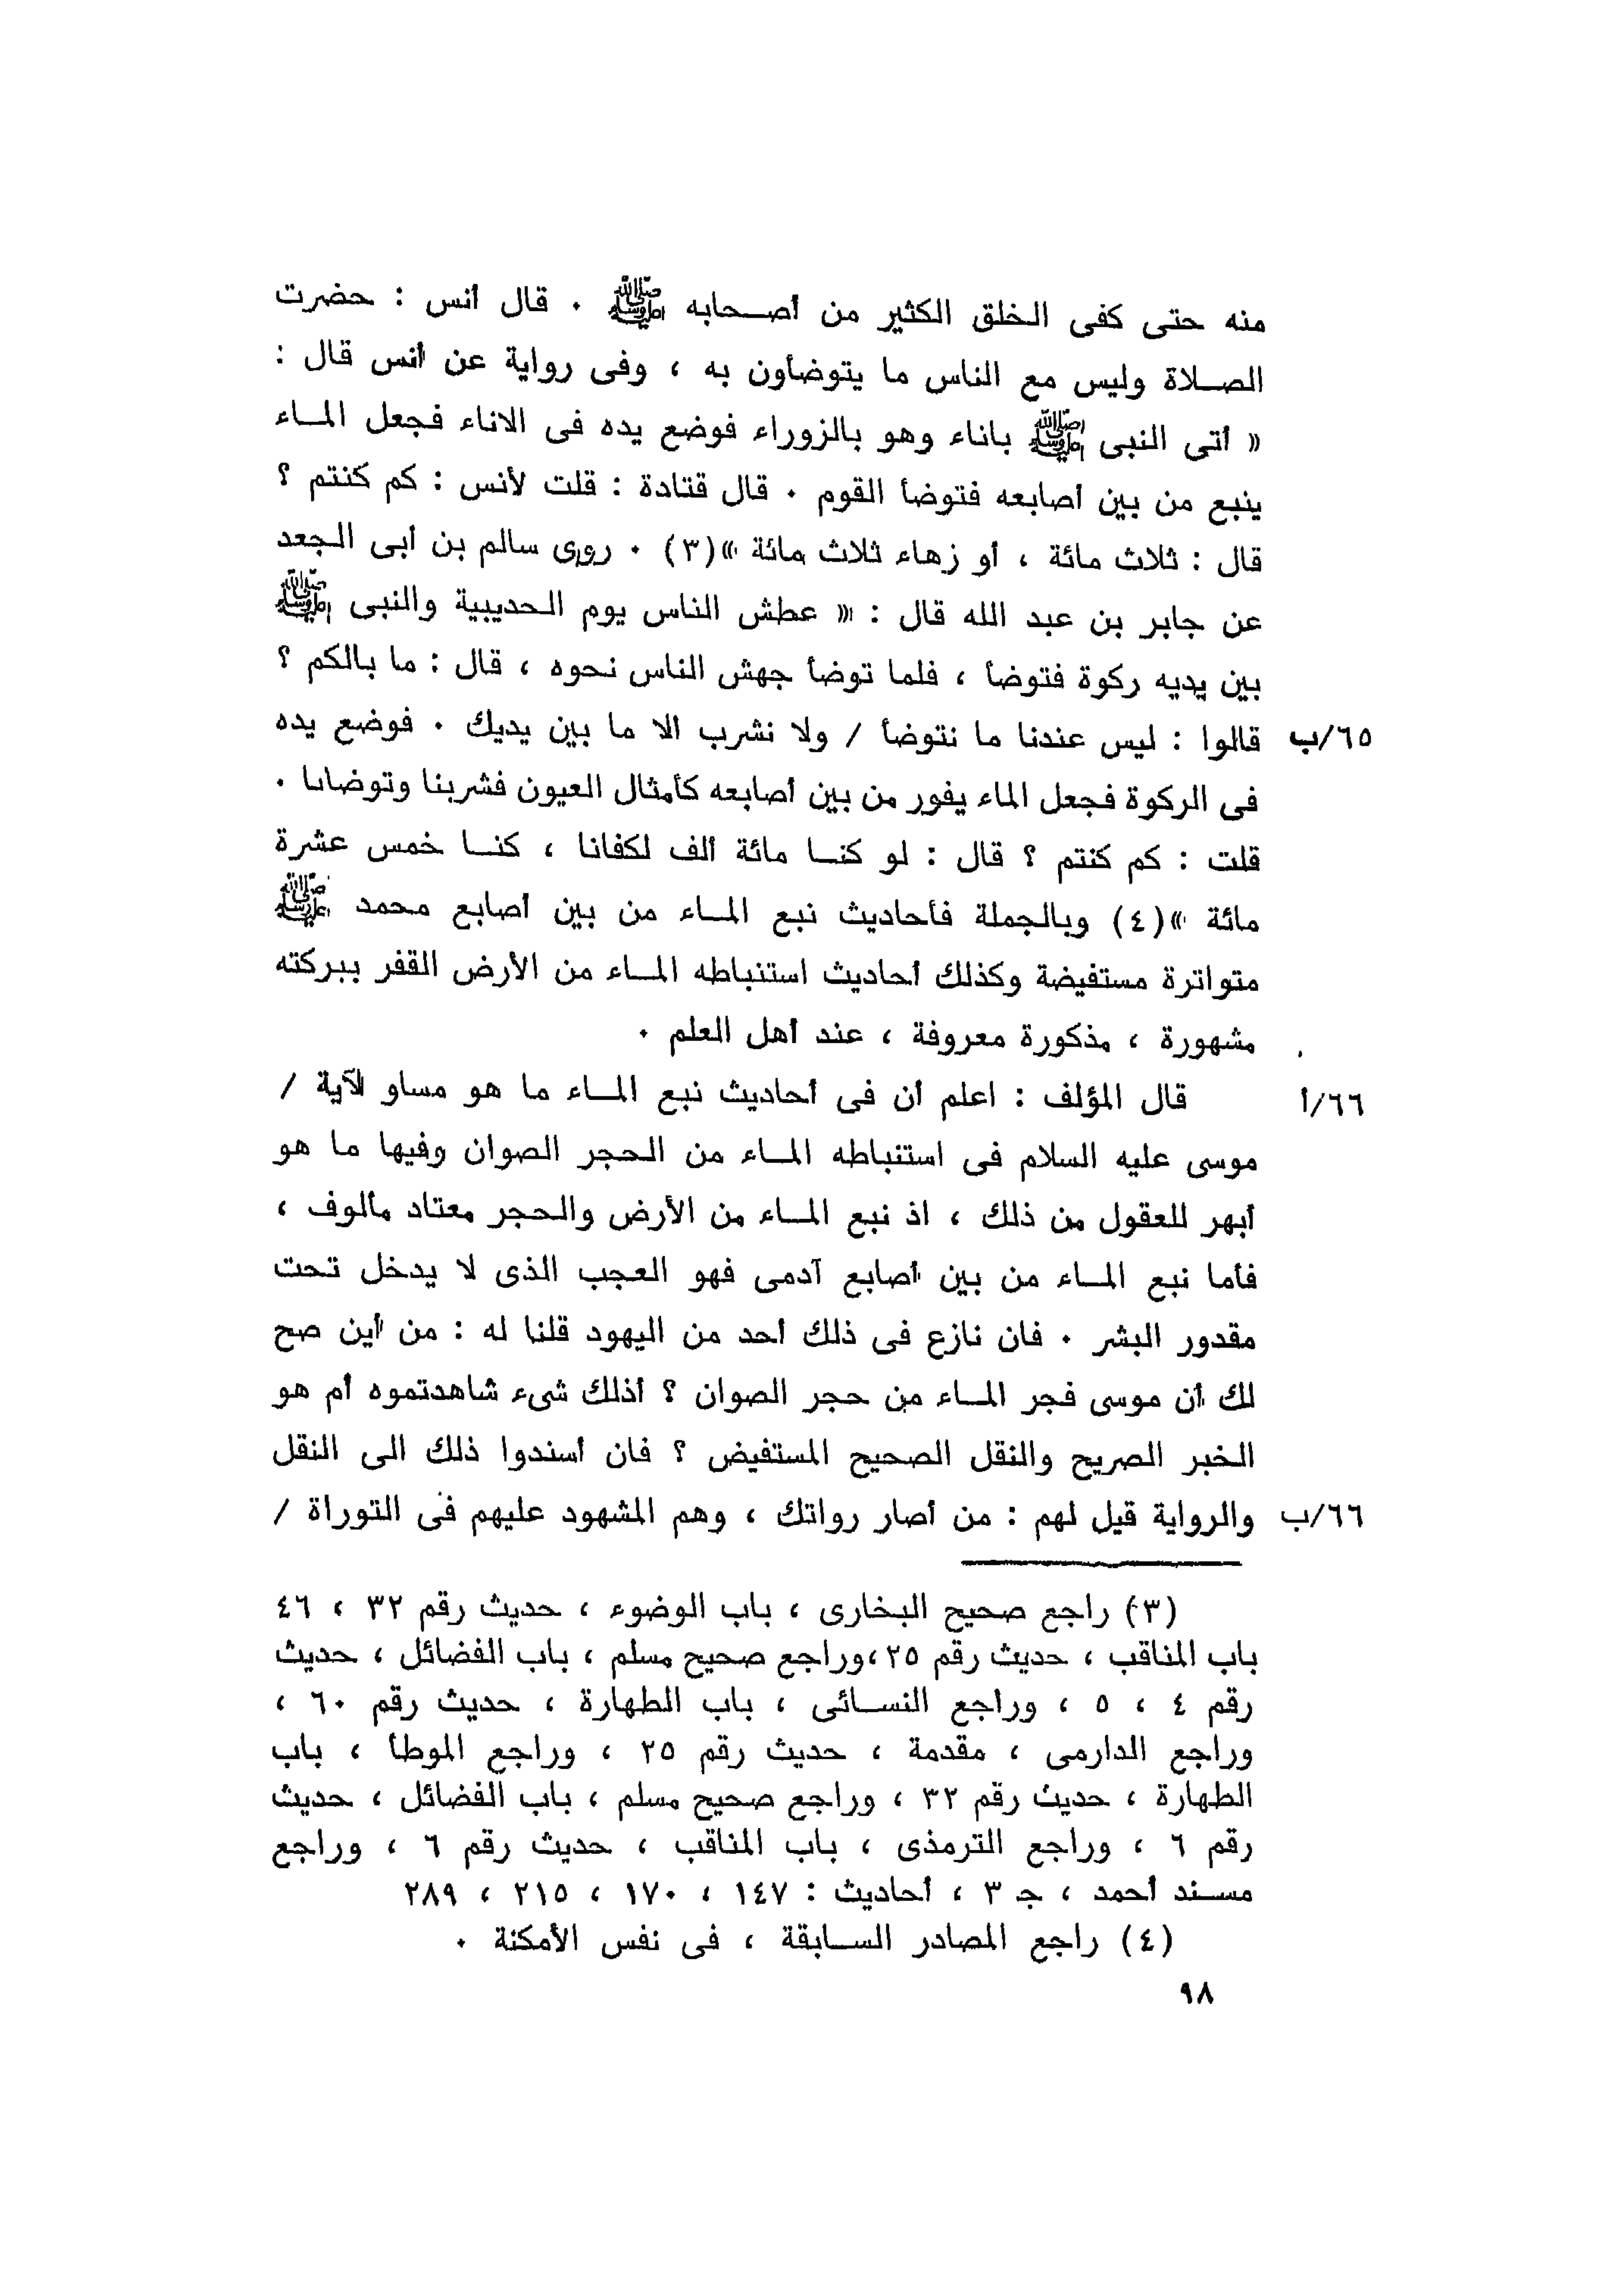 منه حتى كفى الخلق الكثير من أصـحابه ﷺ ٠ قال أنس : حضرت
الصـلاة وليس مع الناس ما يتوضأون به ، وفى رواية عن أنس قال :
« أتى النبى ﷺ باناء وهو بالزوراء فوضع يده فى الاناء فجعل المـاء
ينبع من بين أصابعه فتوضأ القوم ٠ قال قتادة : قلت لأنس : كم كنتم ؟
قال : ثلاث مائة ، أو زهاء ثلاث مائة »(٣) ٠ روى سالم بن أبى الجعد
عن جابر بن عبد الله قال : « عطش الناس يوم الحديبية والنبى ﷺ
بين يديه ركوة فتوضأ ، فلما توضأ جهش الناس نحوه ، قال : ما بالكم ؟
٦٥/ب قالوا : ليس عندنا ما نتوضأ / ولا نشرب الا ما بين يديك ٠ فوضع يده
فى الركوة فجعل الماء يفور من بين أصابعه كأمثال العيون فشربنا وتوضأنا ٠
قلت : كم كنتم ؟ قال : لو كنـا مائة ألف لكفانا ، كنـا خمس عشرة
مائة »(٤) وبالجملة فأحاديث نبع المـاء من بين أصابع محمد ﷺ
متواترة مستفيضة وكذلك أحاديث استنباطه المـاء من الأرض القفر ببركته
مشهورة ، مذكورة معروفة ، عند أهل العلم ٠
٦٦/أ قال المؤلف : اعلم أن فى أحاديث نبع المـاء ما هو مساو لآية /
موسى عليه السلام فى استنباطه المـاء من الحجر الصوان وفيها ما هو
أبهر للعقول من ذلك ، اذ نبع المـاء من الأرض والحجر معتاد مألوف ،
فأما نبع المـاء من بين أصابع آدمى فهو العجب الذى لا يدخل تحت
مقدور البشر ٠ فان نازع فى ذلك أحد من اليهود قلنا له : من أين صح
لك أن موسى فجر المـاء من حجر الصوان ؟ أذلك شىء شاهدتموه أم هو
الخبر الصريح والنقل الصحيح المستفيض ؟ فان أسندوا ذلك الى النقل
٦٦/ب والرواية قيل لهم : من أصار رواتك ، وهم المشهود عليهم فى التوراة /
(٣) راجع صحيح البخارى ، باب الوضوء ، حديث رقم ٣٢ ، ٤٦
باب المناقب ، حديث رقم ٢٥ ،وراجع صحيح مسلم ، باب الفضائل ، حديث
رقم ٤ ، ٥ ، وراجع النسـائى ، باب الطهارة ، حديث رقم ٦٠ ،
وراجع الدارمى ، مقدمة ، حديث رقم ٢٥ ، وراجع الموطأ ، باب
الطهارة ، حديث رقم ٣٢ ، وراجع صحيح مسلم ، باب الفضائل ، حديث
رقم ٦ ، وراجع الترمذى ، باب المناقب ، حديث رقم ٦ ، وراجع
مسـند أحمد ، جـ ٣ ، أحاديث : ١٤٧ ، ١٧٠ ، ٢١٥ ، ٢٨٩
(٤) راجع المصادر السـابقة ، فى نفس الأمكنة ٠
٩٨